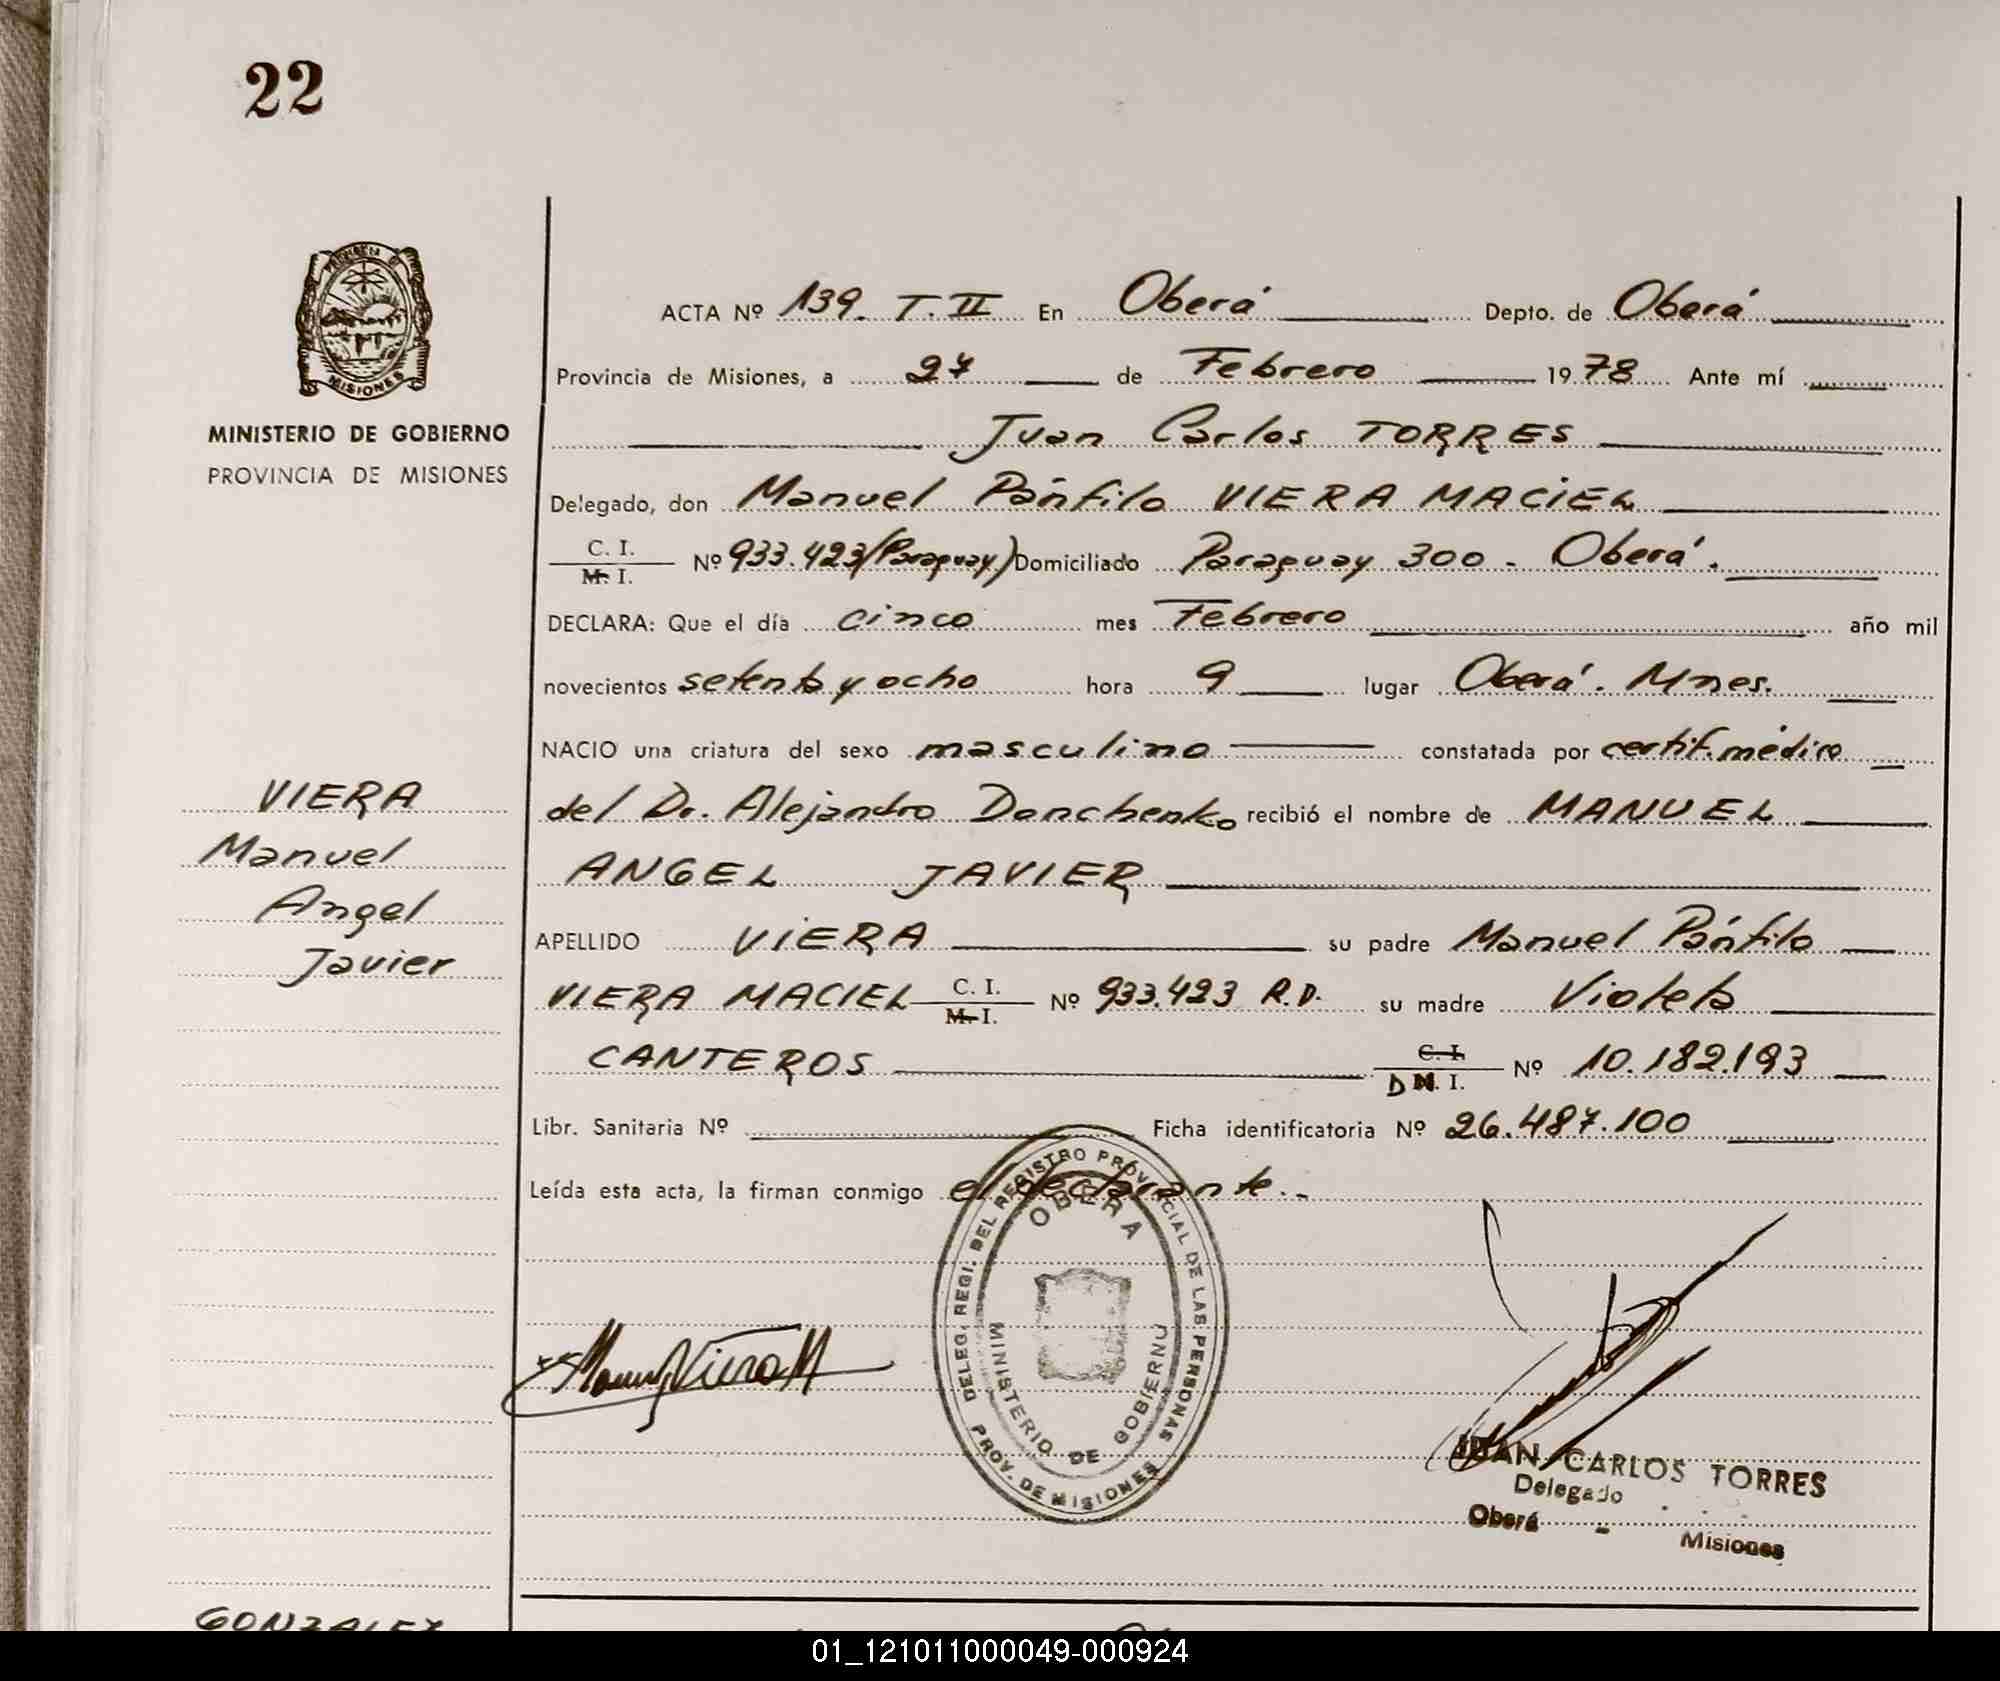 22
PROVINCIA DE
MISIONES
MINISTERIO DE GOBIERNO
PROVINCIA DE MISIONES
ACTA Nº 139. T. II En Oberá Depto. de Oberá
Provincia de Misiones, a 27 de Febrero 1978 Ante mí
Juan Carlos TORRES
Delegado, don Manuel Pánfilo VIERA MACIEL
C. I.
M. I. Nº 933.423 (Paraguay) Domiciliado Paraguay 300 - Oberá.
DECLARA: Que el día cinco mes Febrero año mil
novecientos setenta y ocho hora 9 lugar Oberá. Mnes.
NACIO una criatura del sexo masculino constatada por certif. médico
del Dr. Alejandro Donchenko recibió el nombre de MANUEL
ANGEL JAVIER
APELLIDO VIERA su padre Manuel Pánfilo
VIERA MACIEL C. I.
M. I. Nº 933.423 R.P. su madre Violeta
CANTEROS C. I.
D N. I. Nº 10.182.193
Libr. Sanitaria Nº Ficha identificatoria Nº 26.487.100
Leída esta acta, la firman conmigo el declarante.-
VIERA
Manuel
Angel
Javier
DELEG. REGI. DEL REGISTRO PROVINCIAL DE LAS PERSONAS
OBERA
MINISTERIO DE GOBIERNO
PROV. DE MISIONES
Manuel Viera M
JUAN CARLOS TORRES
Delegado
Oberá - Misiones
GONZALEZ
01_121011000049-000924